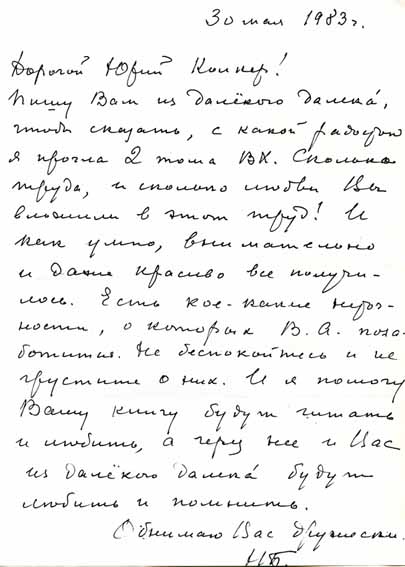 30 мая 1983 г.
Дорогой Юрий Колкер!
Пишу Вам из далёкого далека́,
чтоб сказать, с какой радостью
я прочла 2 тома ВХ. Сколько
труда, и сколько любви Вы
вложили в этот труд! И
как умно, внимательно
и даже красиво все получи-
лось. Есть кое-какие неточ-
ности, о которых В. А. поза-
ботится. Не беспокойтесь и не
грустите о них. И я помогу
Вашу книгу будут читать
и любить, а через нее и Вас
из далёкого далека́ будут
любить и помнить.
Обнимаю Вас дружески.
НБ.